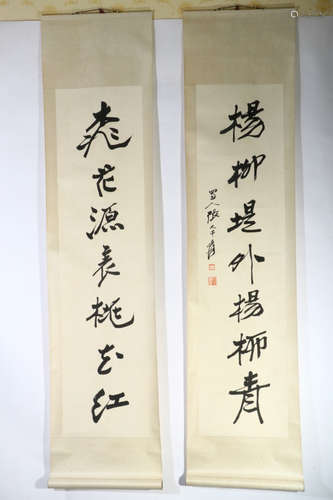 楊柳堤外楊柳青
蜀人張大千爰
桃花源裏桃花紅